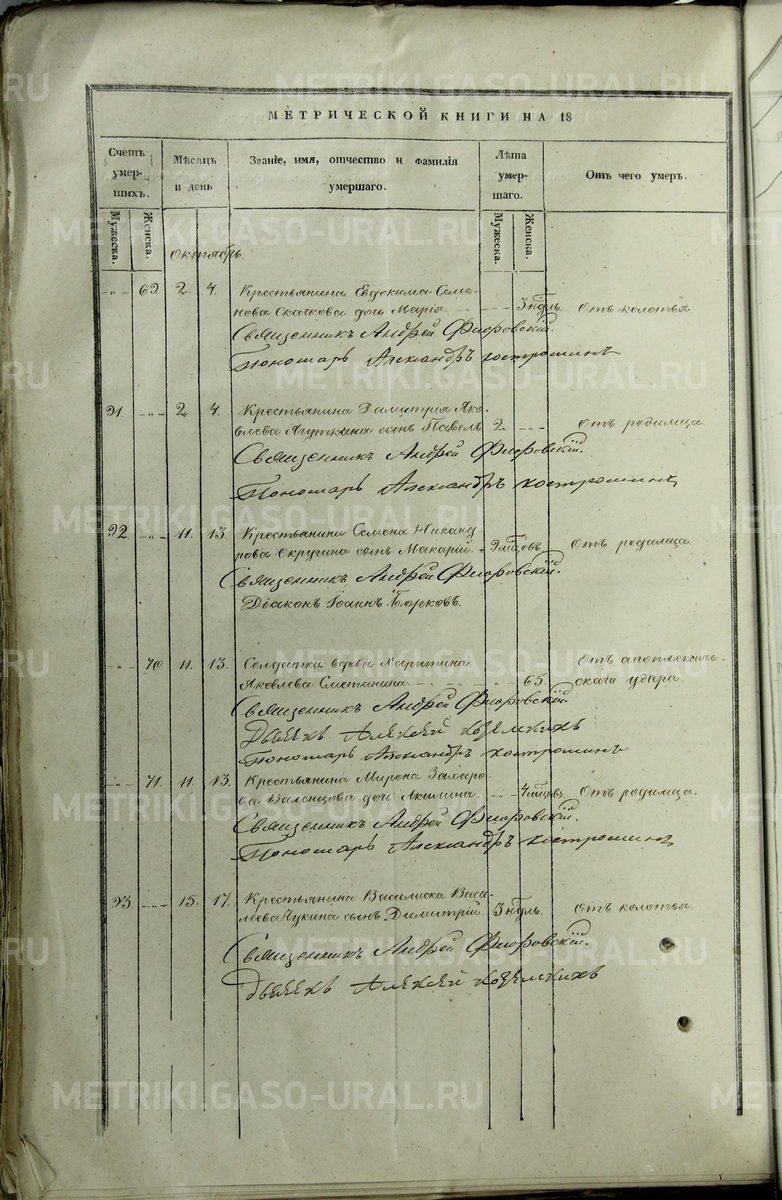 МЕТРИЧЕСКОЙ КНИГИ НА 18
Счетъ умер-шихъ. Мѣсяцъ и день Званіе, имя, отчество и фамилія умершаго. Лѣта умер-шаго. Отъ чего умеръ.
Мужеска. Женска. Мужеска. Женска.
Октябрь.
69. 2. 4. Крестьянина Евдокима Семе-
нова Скачкова дочь Марія 3 нѣдль. Отъ колотья
Священникъ Андрей Флоровскій.
Пономарь Александръ Костроминъ
91. 2. 4. Крестьянина Димитрія Яко-
влева Ягуткина сынъ Павелъ 2. Отъ родимца.
Священникъ Андрей Флоровскій.
Пономарь Александръ Костроминъ
92. 11. 13. Крестьянина Семена Никанд-
рова Округина сынъ Макарій. 9 мѣцовъ. Отъ родимца.
Священникъ Андрей Флоровскій.
Діаконъ Іоаннъ Борковъ.
70. 11. 13. Солдатка вдова
Яковлева 65. Отъ апоплексиче-
скаго удара.
Священникъ Андрей Флоровскій
Дьячекъ Алексей
Пономарь Александръ Костроминъ
71. 11. 13. Крестьянина Мирона Захаро-
ва дочь Акилина. 4 мѣцовъ. Отъ родимца.
Священникъ Андрей Флоровскій.
Пономарь Александръ Костроминъ
93. 15. 17. Крестьянина Василька Васи-
льева сынъ Димитрій. 3 нѣдль. Отъ колотья.
Священникъ Андрей Флоровскій.
Дьячекъ Алексей
METRIKI.GASO-URAL.RU